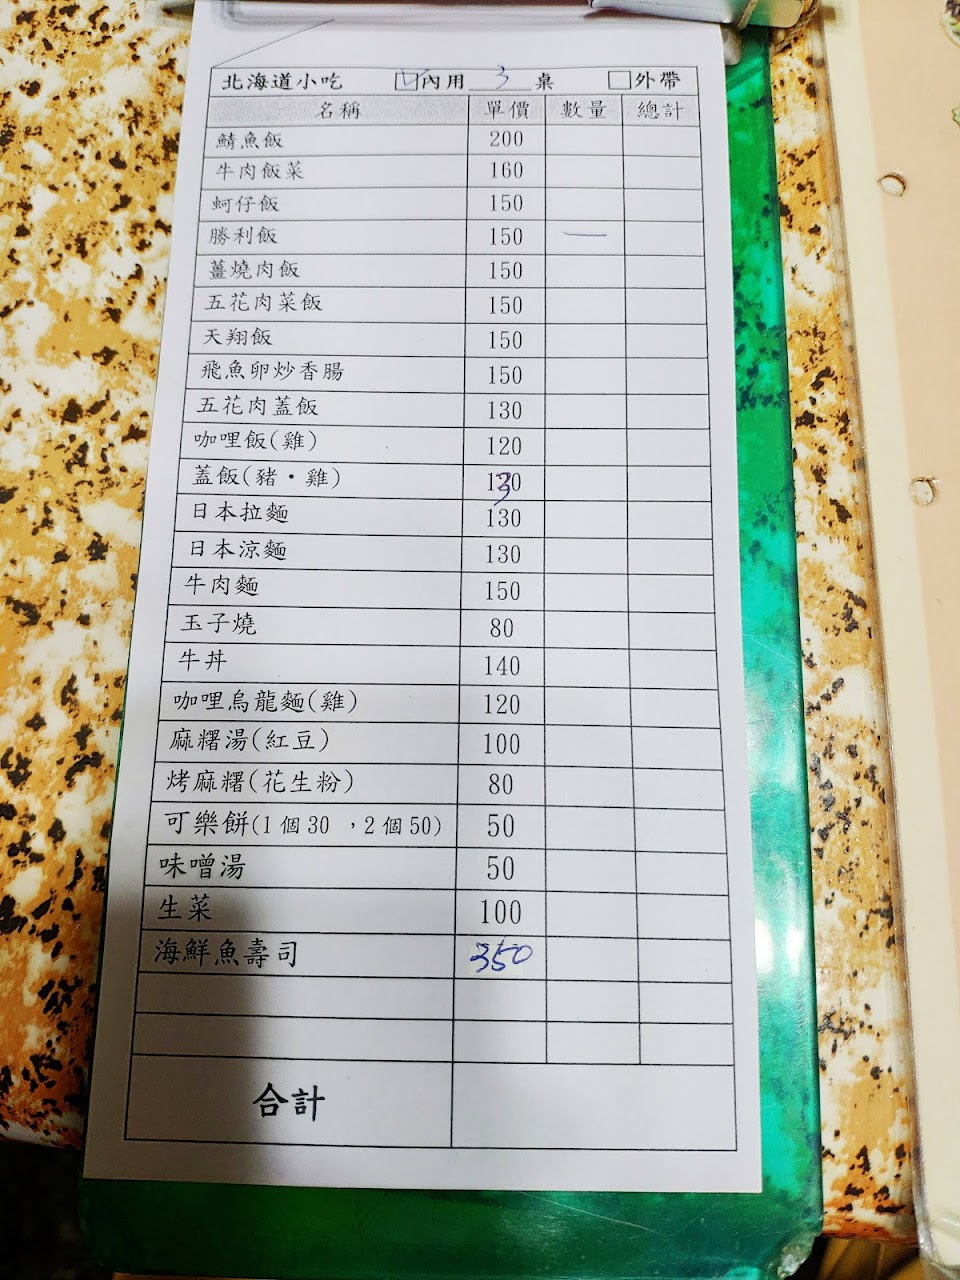 北海道小吃 ☑內用 3 桌 □外帶
名稱 單價 數量 總計
鯖魚飯 200
牛肉飯菜 160
蚵仔飯 150
勝利飯 150 一
薑燒肉飯 150
五花肉菜飯 150
天翔飯 150
飛魚卵炒香腸 150
五花肉蓋飯 130
咖哩飯(雞) 120
蓋飯(豬·雞) 130
日本拉麵 130
日本涼麵 130
牛肉麵 150
玉子燒 80
牛丼 140
咖哩烏龍麵(雞) 120
麻糬湯(紅豆) 100
烤麻糬(花生粉) 80
可樂餅(1個30 ,2個50) 50
味噌湯 50
生菜 100
海鮮魚壽司 350
合計